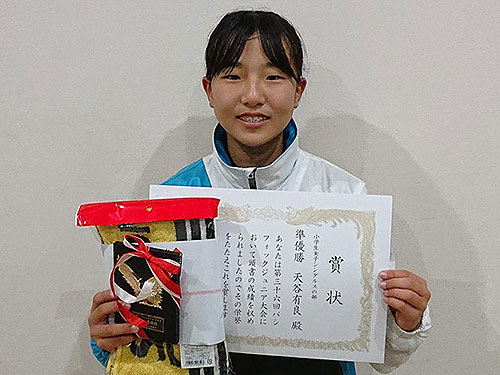 賞状
小学生女子シングルスの部
準優勝 天谷有良 殿
あなたは第三十六回パシ
フィックジュニア大会に
おいて頭書の成績を収め
られましたのでその栄誉
をたたえこれを賞します